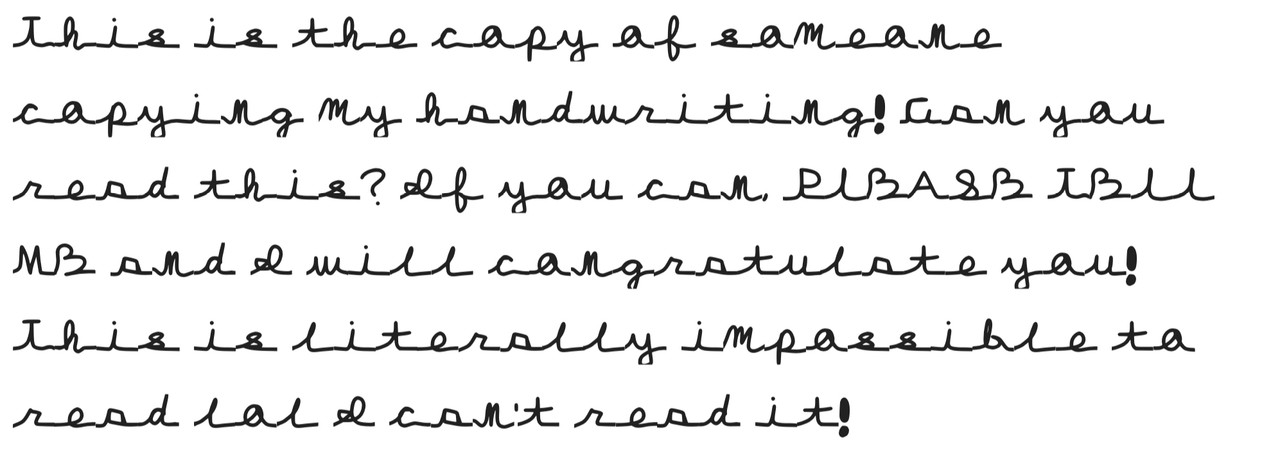 This is the copy of someone
copying my handwriting! Can you
read this? If you can, PLEASE TELL
ME and I will congratulate you!
This is literally impossible to
read lol I can't read it!